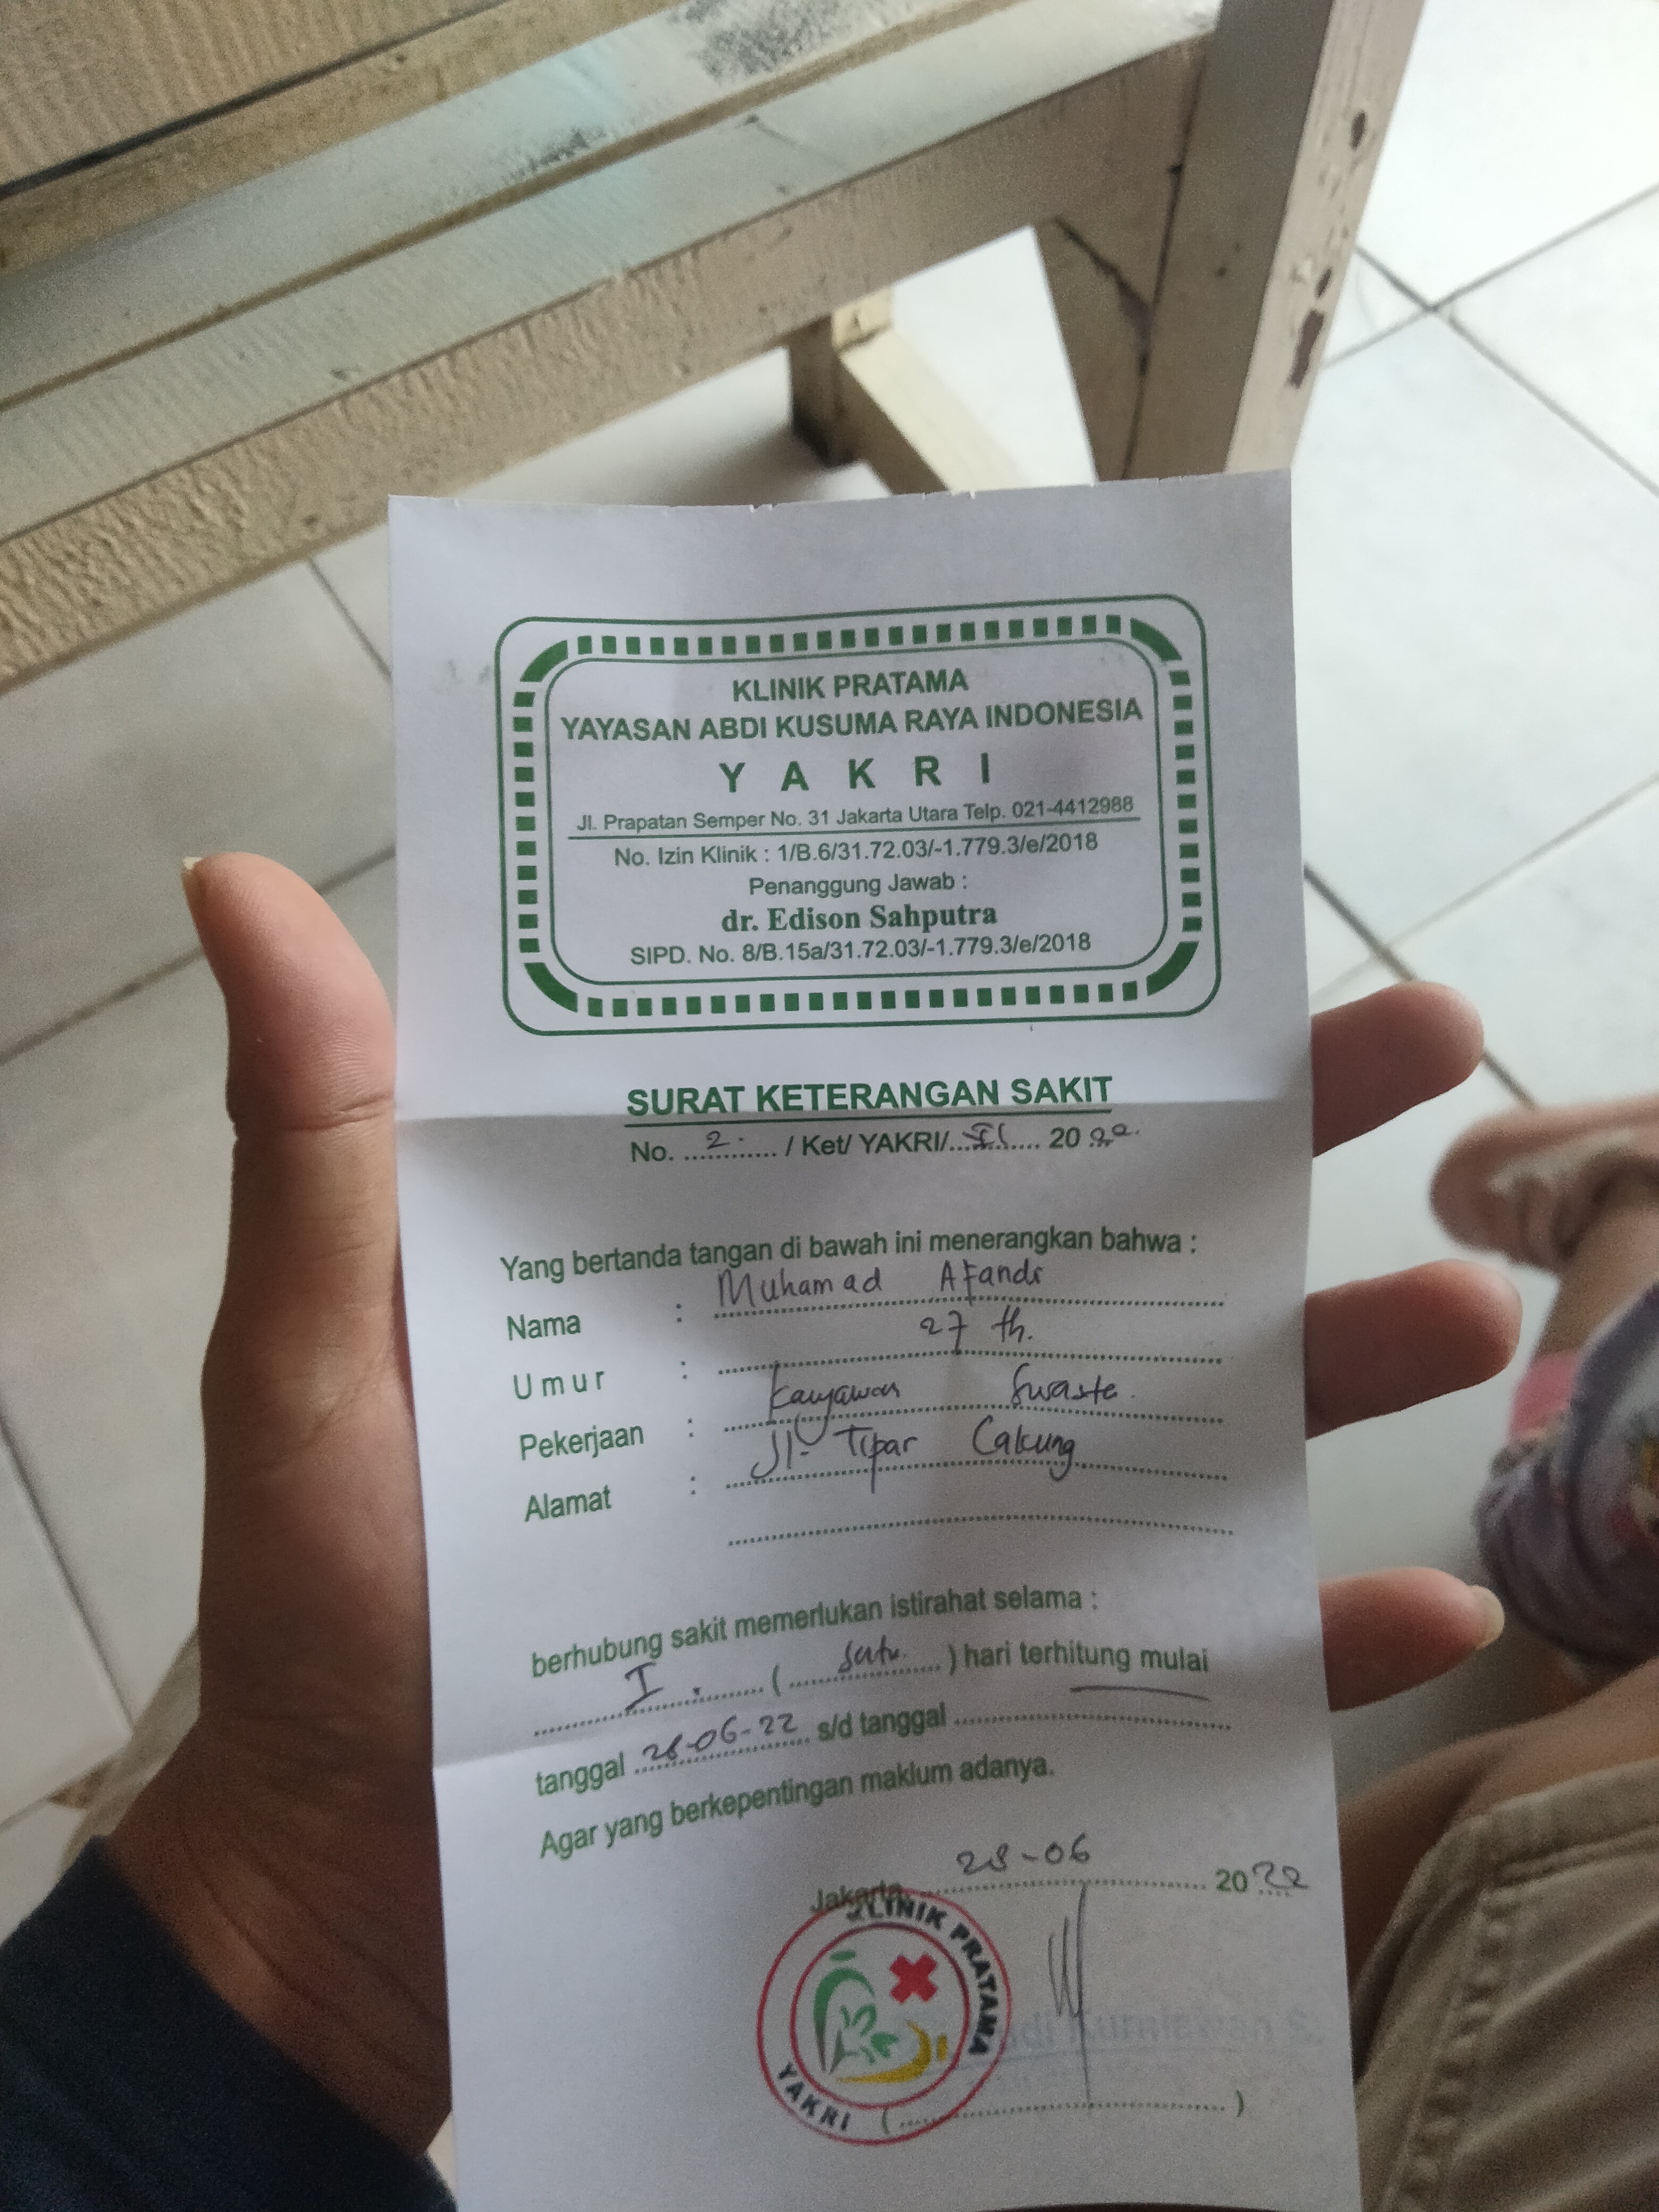 KLINIK PRATAMA
YAYASAN ABDI KUSUMA RAYA INDONESIA
Y A K R I
Jl. Prapatan Semper No. 31 Jakarta Utara Telp. 021-4412988
No. Izin Klinik : 1/B.6/31.72.03/-1.779.3/e/2018
Penanggung Jawab :
dr. Edison Sahputra
SIPD. No. 8/B.15a/31.72.03/-1.779.3/e/2018
SURAT KETERANGAN SAKIT
No. 2. / Ket/ YAKRI/ 2022.
Yang bertanda tangan di bawah ini menerangkan bahwa :
Nama : Muhamad Afandi
Umur : 27 th.
Pekerjaan : Karyawan Swasta.
Alamat : Jl. Tipar Cakung
berhubung sakit memerlukan istirahat selama :
I. ( satu ) hari terhitung mulai
tanggal 28-06-22 s/d tanggal
Agar yang berkepentingan maklum adanya.
Jakarta, 28-06 2022
KLINIK PRATAMA
YAKRI
( )